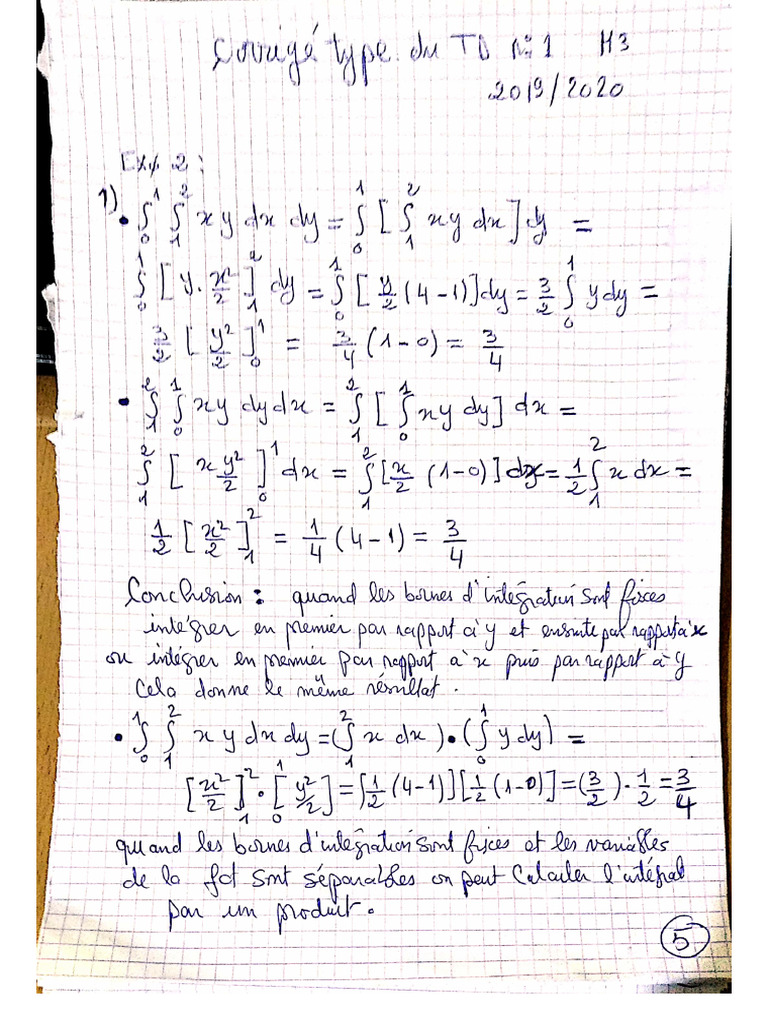 Corrigé type du TD N°1 M3
2019/2020
Exo 2 :
1) • ∫₀¹ ∫₁² x y dx dy = ∫₀¹ [∫₁² xy dx] dy =
∫₀¹ [y. x²/2]₁² dy = ∫₀¹ [y/2 (4-1)] dy = 3/2 ∫₀¹ y dy =
3/2 [y²/2]₀¹ = 3/4 (1-0) = 3/4
• ∫₁² ∫₀¹ xy dy dx = ∫₁² [∫₀¹ xy dy] dx =
∫₁² [x y²/2]₀¹ dx = ∫₁² [x/2 (1-0)] dx = 1/2 ∫₁² x dx =
1/2 [x²/2]₁² = 1/4 (4-1) = 3/4
Conclusion : quand les bornes d'intégration sont fixes
intégrer en premier par rapport à y et ensuite par rapport à x
ou intégrer en premier par rapport à x puis par rapport à y
Cela donne le même résultat.
• ∫₀¹ ∫₁² x y dx dy = (∫₁² x dx) • (∫₀¹ y dy) =
[x²/2]₁² • [y²/2]₀¹ = [1/2 (4-1)][1/2 (1-0)] = (3/2) • 1/2 = 3/4
quand les bornes d'intégration sont fixes et les variables
de la fct sont séparables on peut calculer l'intégral
par un produit.
5